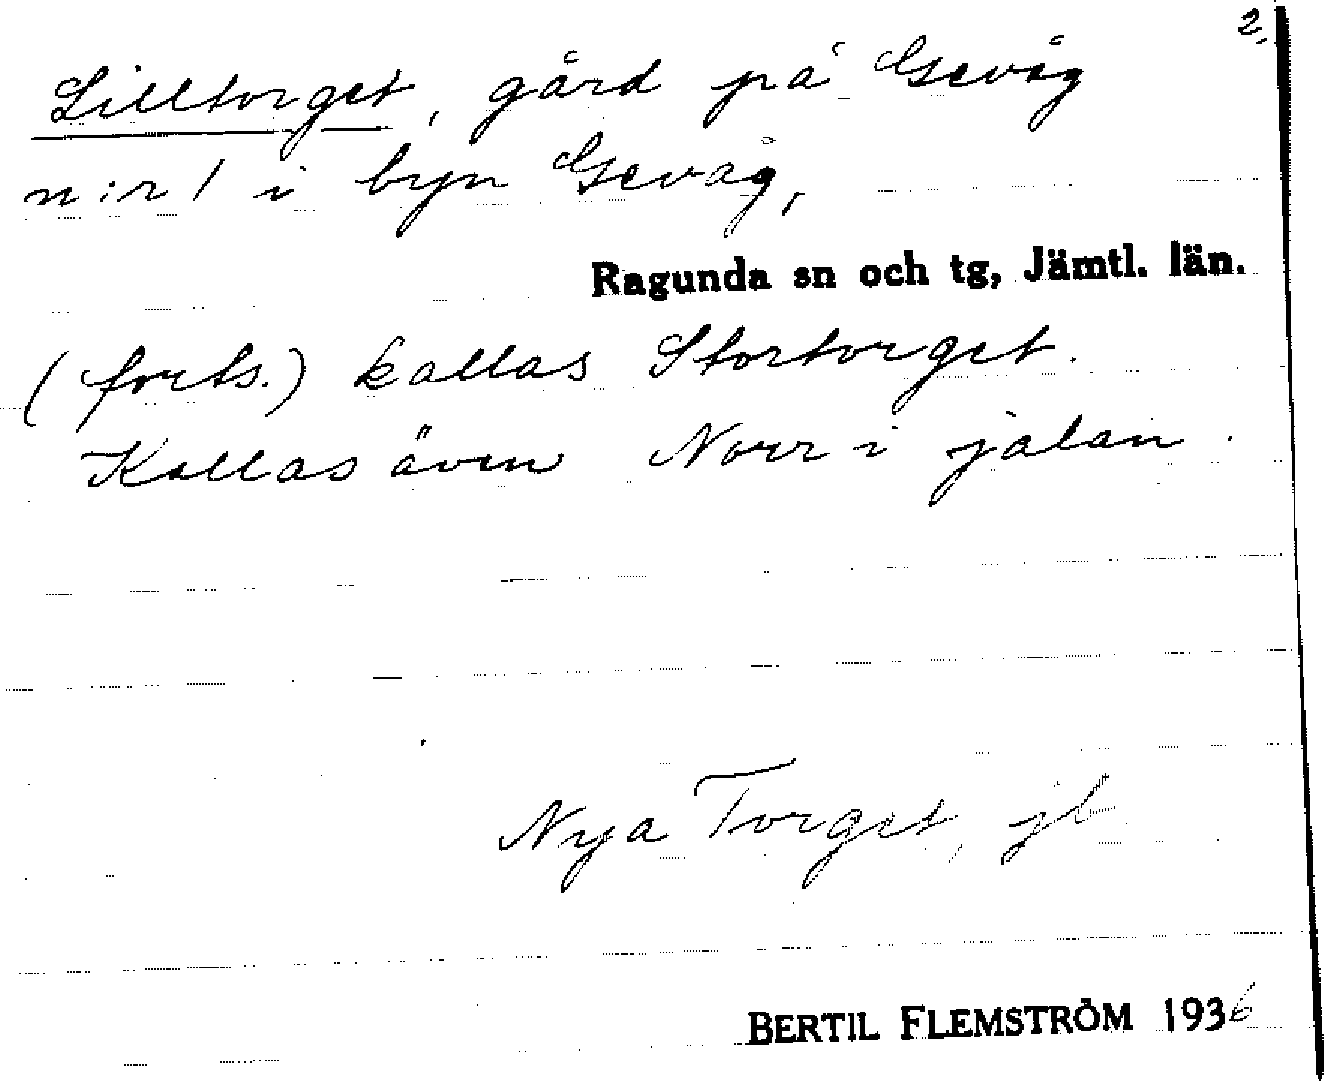 2.
Lilltorget, gård på Gevåg
n:r 1 i byn Gevåg,
Ragunda sn och tg, Jämtl. län.
(forts.) kallas Stortorget.
Kallas även Norr i jalan.
Nya Torget, jb
BERTIL FLEMSTRÖM 1936